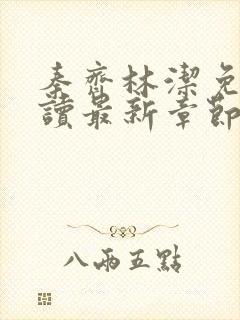 秦齊林潔免
讀最新章節
八兩五點